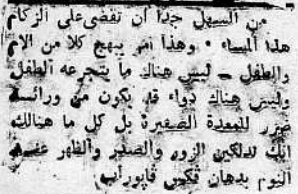 من السهل جدا ان تقضي على الزكام
هذا المساء • وهذا امر يبهج كلا من الام
والطفل ــ ليس هناك ما يتجرعه الطفل
وليس هناك دواء قد يكون من ورائه
ضرر للمعدة الصغيرة بل كل ما هنالك
انك تدلكين الزور والصدر والظهر عند
النوم بدهان فكس فابوراب